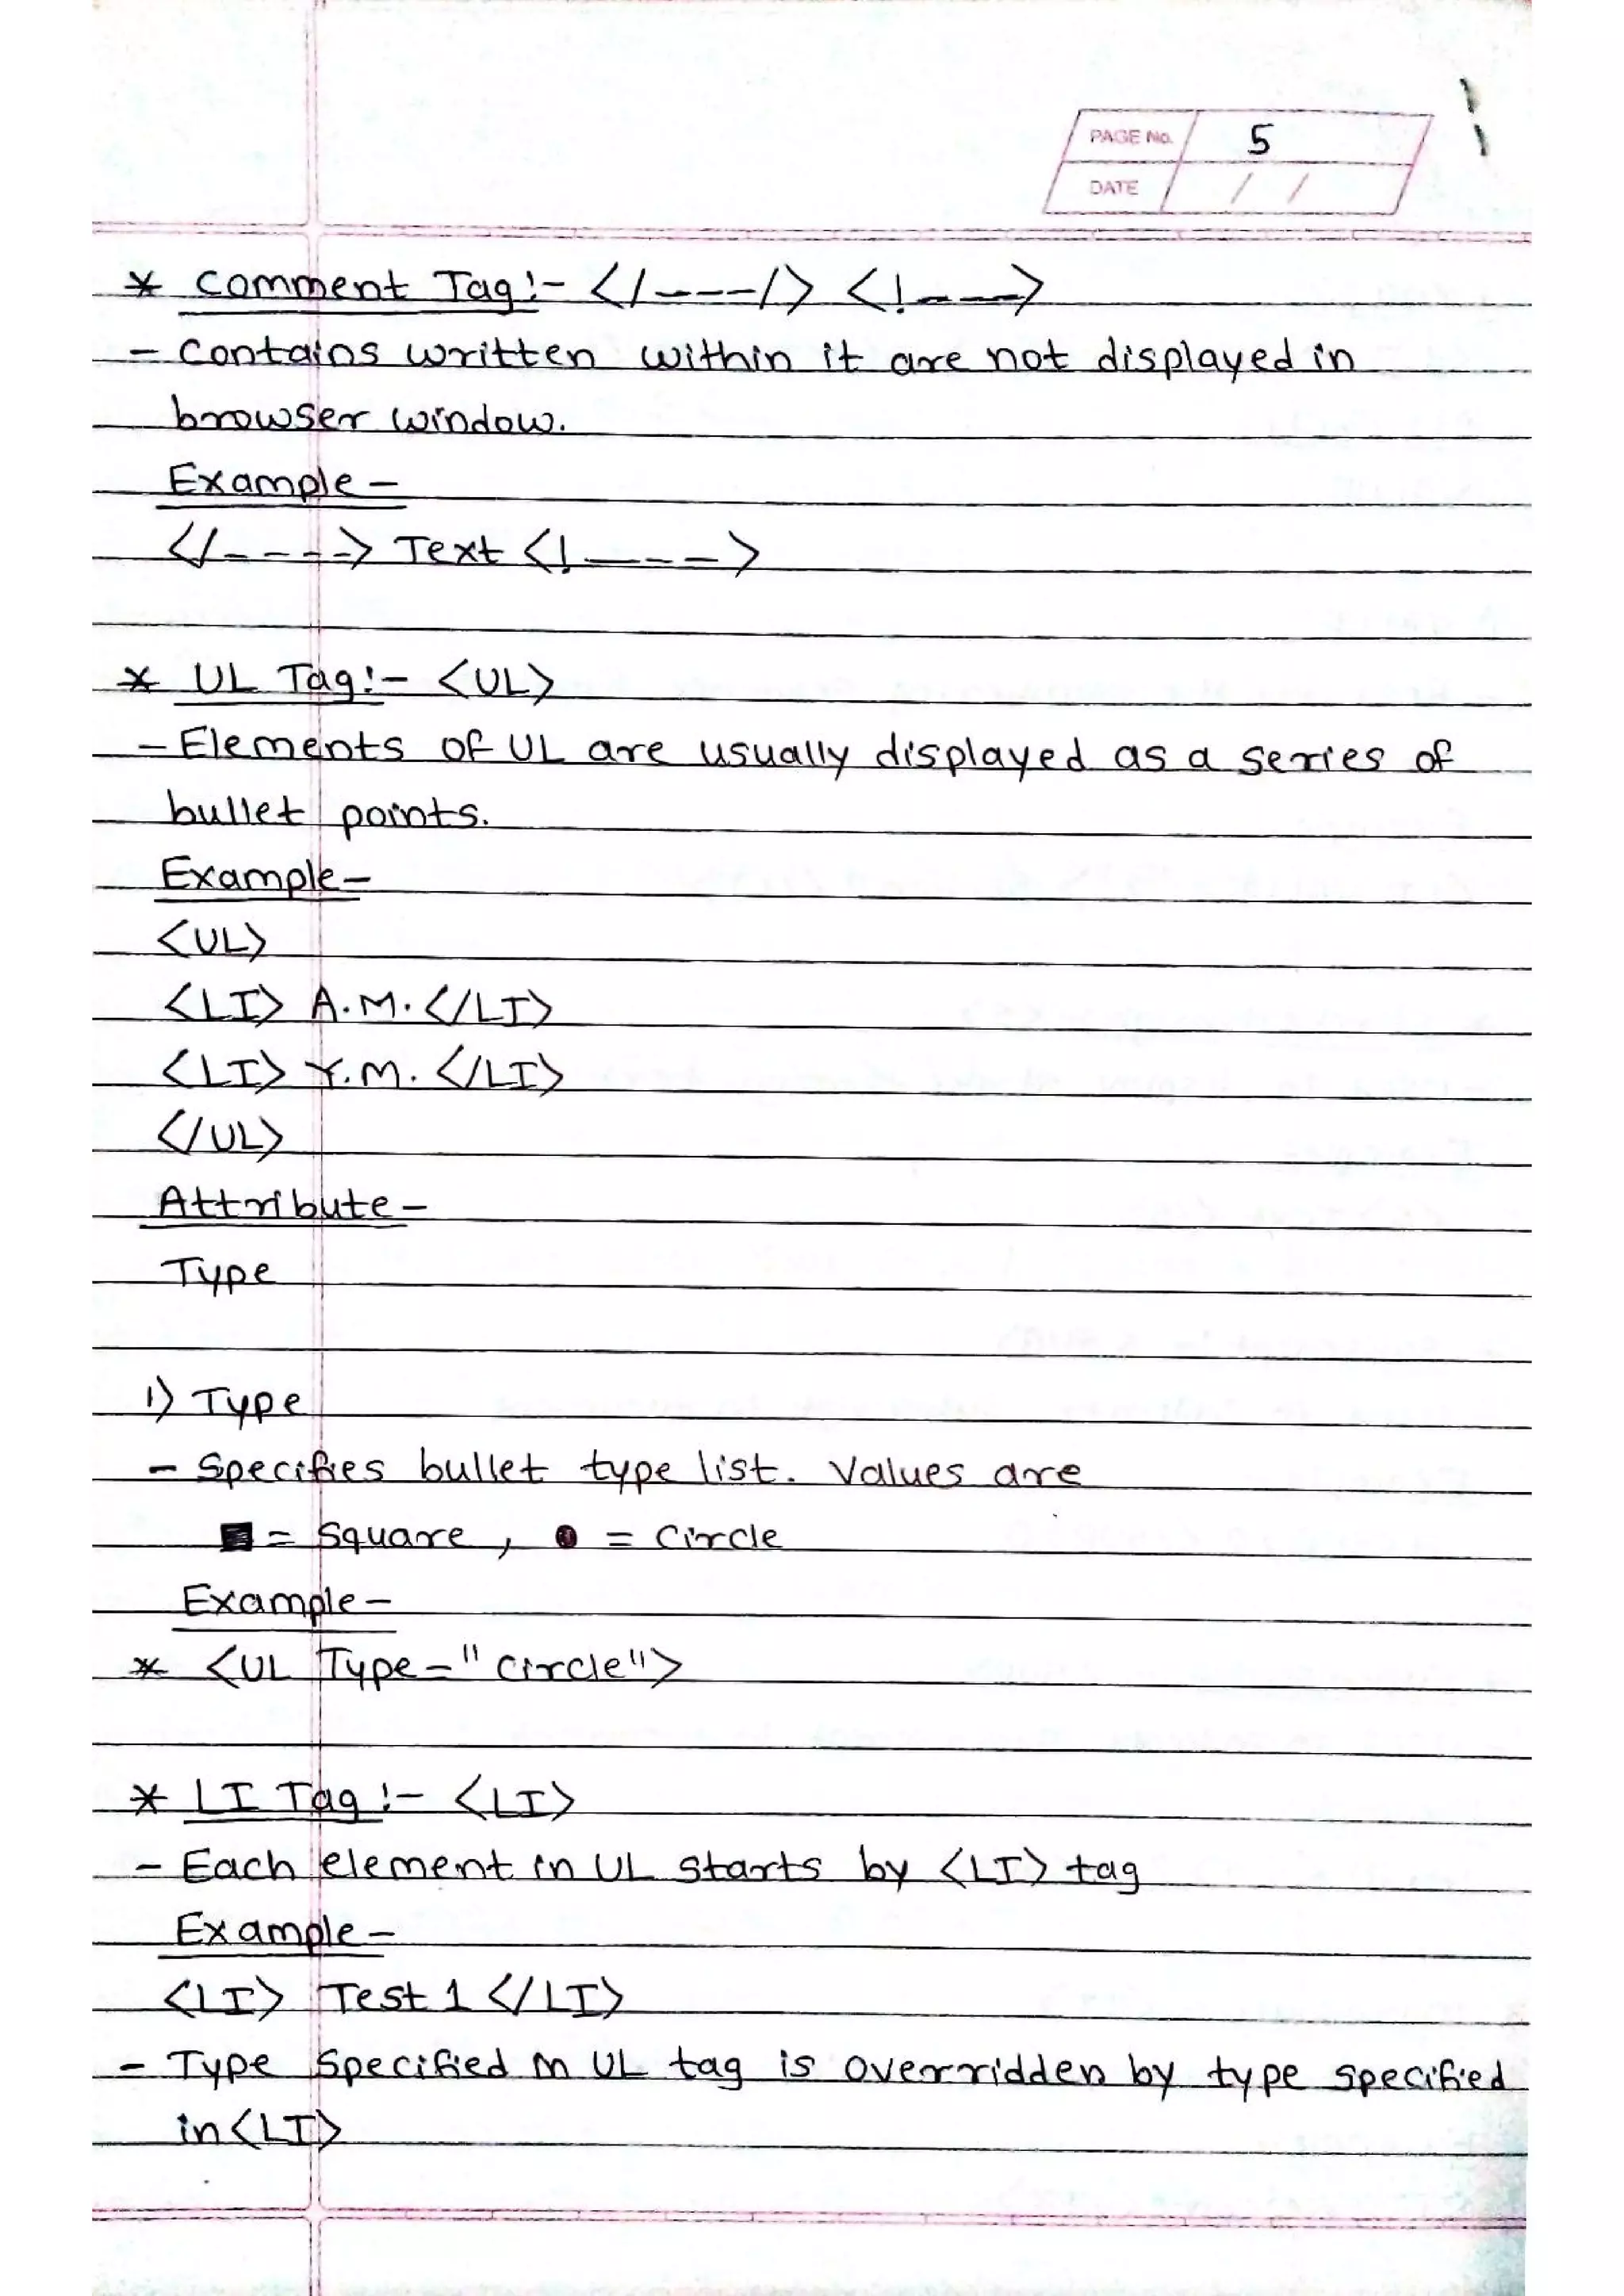 PAGE No. 5
DATE / /
* Comment Tag:- </----/> <!--->
- Contains written within it are not displayed in
browser window.
Example -
</----> Text <!---->
* UL Tag:- <UL>
- Elements of UL are usually displayed as a series of
bullet points.
Example-
<UL>
<LI> A.M. </LI>
<LI> Y.M. </LI>
</UL>
Attribute -
Type
1) Type
- Specifies bullet type list. Values are
■ = Square , ● = Circle
Example-
* <UL Type="circle">
* LI Tag:- <LI>
- Each element in UL starts by <LI> tag
Example-
<LI> Test 1 </LI>
- Type Specified in UL tag is overridden by type specified
in <LI>